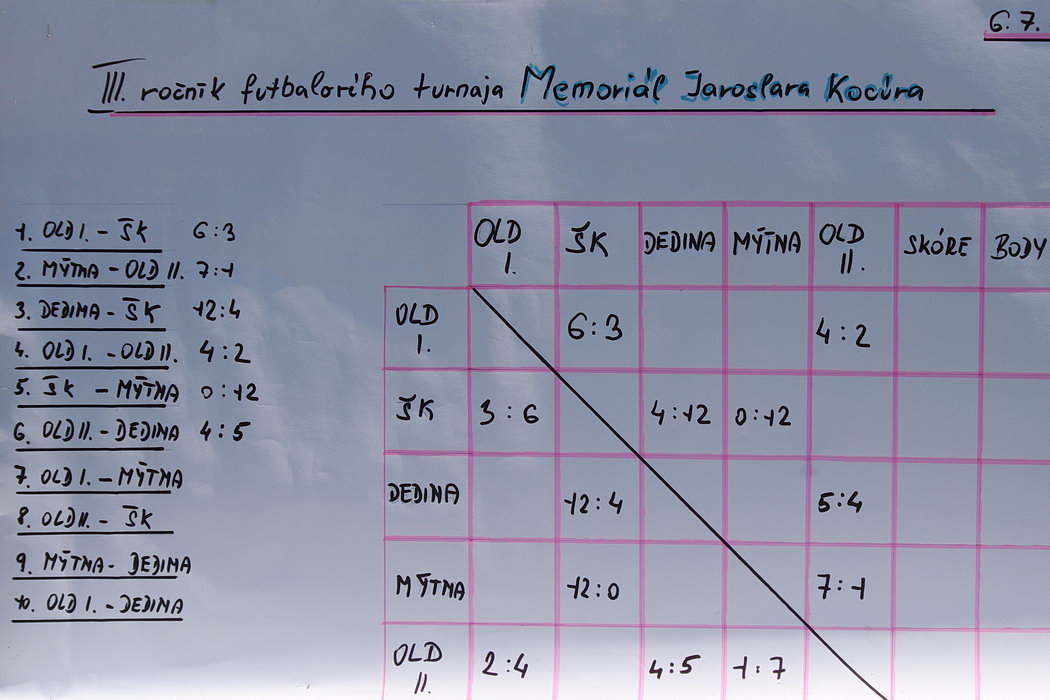 6.7.
III. ročník futbalového turnaja Memoriál Jaroslava Kocúra
1. OLD I. - ŠK 6:3
2. MÝTNA - OLD II. 7:1
3. DEDINA - ŠK 12:4
4. OLD I. - OLD II. 4:2
5. ŠK - MÝTNA 0:12
6. OLD II. - DEDINA 4:5
7. OLD I. - MÝTNA
8. OLD II. - ŠK
9. MÝTNA - DEDINA
10. OLD I. - DEDINA
OLD I. ŠK DEDINA MÝTNA OLD II. SKÓRE BODY
OLD I. 6:3 4:2
ŠK 3:6 4:12 0:12
DEDINA 12:4 5:4
MÝTNA 12:0 7:1
OLD II. 2:4 4:5 1:7